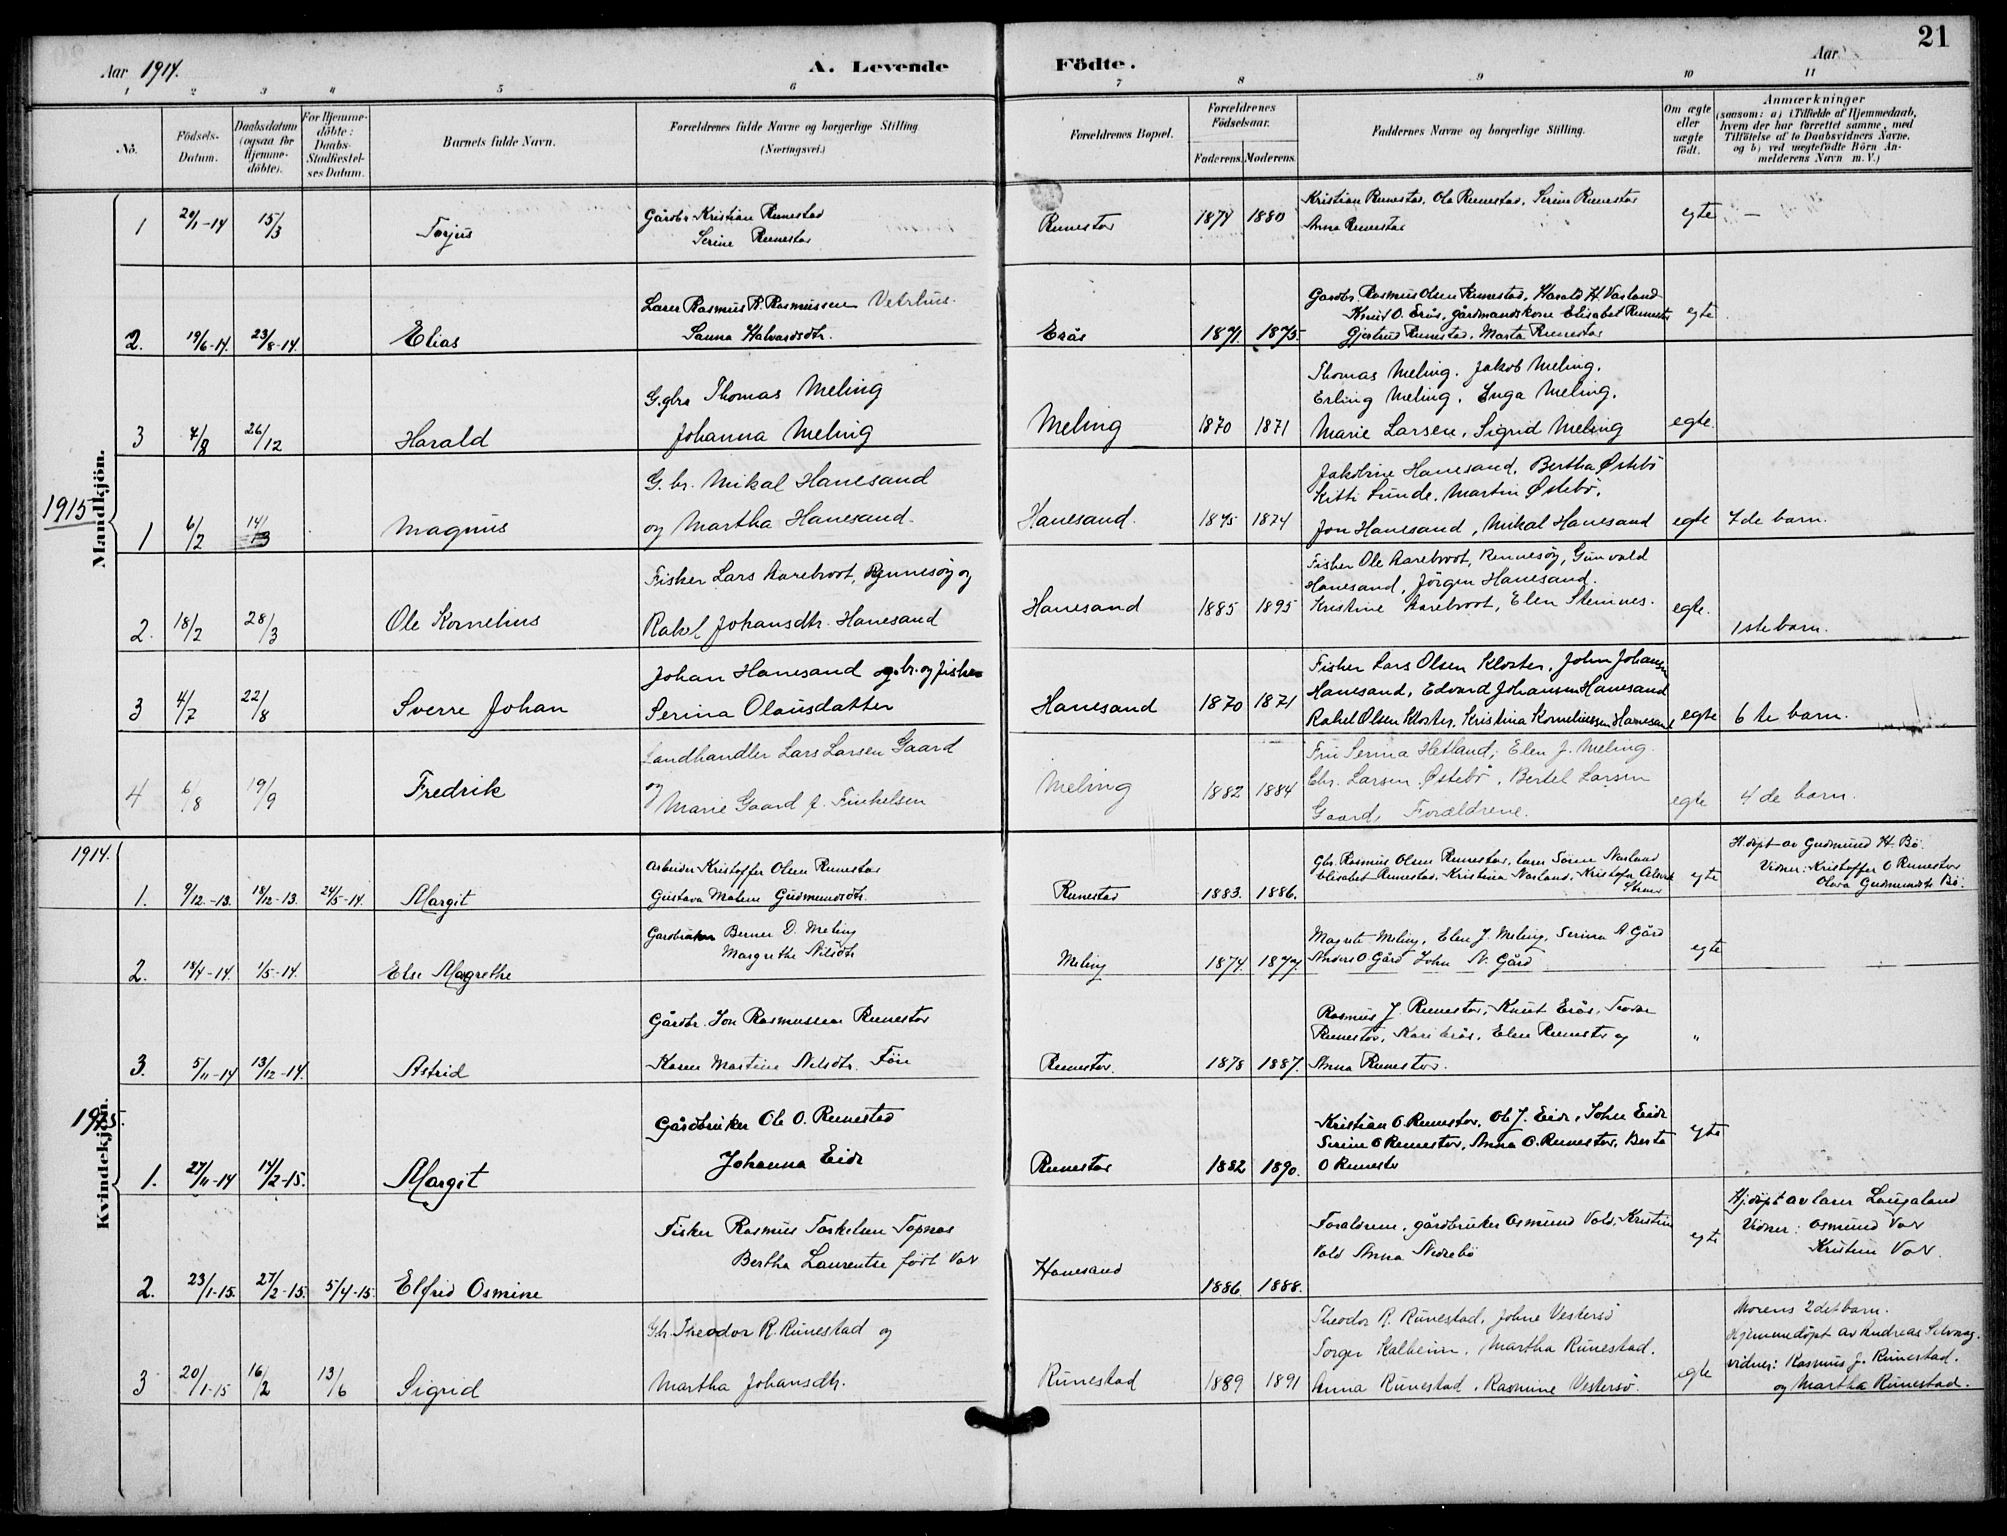 21
Aar 1914. A. Levende Födte. Aar
1 2 3 4 5 6 7 8 9 10 11
No. Födsels-Datum. Daabsdatum (ogsaa for Hjemme-döbte). For Hjemme-döbte: Daabs-Stadfæstel-ses Datum. Barnets fulde Navn. Forældrenes fulde Navne og borgerlige Stilling (Næringsvei.) Forældrenes Bopæl. Forældrenes Födselsaar. Faderens. Moderens. Faddernes Navne og borgerlige Stilling. Om ægte eller uægte födt. Anmærkninger (saasom: a) i Tilfælde af Hjemmedaab, hvem der har forrettet samme, med Tilföielse af to Daabsvidners Navne, og b) ved uægtefödte Börn An-melderens Navn m. V.)
Mandkjön.
1 20/1-14 15/3 Torjus Gårdbr Kristian Runestad
Serine Runestad Runestad 1874 1880 Kristian Runestad, Ola Runestad, Serine Runestad
Anna Runestad egte —
2. 19/6-14. 23/8-14. Elias Lærer Rasmus R. Rasmussen Vetrhus.
Sanna Halvardsdtr. Erås 1871. 1875. Gardbr. Rasmus Olsen Runestad, Harald H. Varland
Knud O. Erås, gårdmandskone Elisabet Runestad
Gjertrud Runestad, Marta Runestad egte
3 7/8 26/12 Harald G.gbr Thomas Meling
Johanna Meling Meling 1870 1871 Thomas Meling. Jakob Meling.
Erling Meling. Inga Meling.
Marie Larsen, Sigrid Meling egte.
1915
1 6/2 14/3 Magnus G. br. Mikal Hanesand
og Martha Hanesand. Hanesand. 1875 1874 Jakobine Hanesand, Bertha Østebö
Kitti Lunde. Martin Østebö.
Jon Hanesand, Mikal Hanesand egte 7de barn.
2. 18/2 28/3 Ole Kornelius Fisker Lars Aarebrot, Rennesöy og
Rakel Johansdtr. Hanesand Hanesand 1885 1895 Fisker Ole Aarebrot, Rennesöy, Gunvald
Hanesand, Jörgen Hanesand.
Kristine Aarebrot, Elen Steinnes. egte. 1ste barn.
3 4/7 22/8 Sverre Johan Johan Hanesand g.br. og fisker
Serina Olausdatter Hanesand 1870 1871 Fisker Lars Olsen Kloster, John Johansen
Hanesand, Edvard Johansen Hanesand
Rakel Olsen Kloster, Kristina Korneliussen Hanesand egte 6te barn.
4 6/8 19/9 Fredrik Landhandler Lars Larsen Gaard
og Marie Gaard f. Finkelsen Meling 1882 1884 Fru Serina Hetland, Elen J. Meling.
Chr. Larsen Østebö, Bertel Larsen
Gaard, Forældrene. egte 4de barn.
Kvindekjön.
1914.
1. 9/12-13. 18/12-13. 24/5-14. Margit Arbeider Kristoffer Olsen Runestad
Gustava Malene Gudmundsdtr. Runestad 1883. 1886. Gbr. Rasmus Olsen Runestad, lærer Sören Narland
Elisabet Runestad, Kristina Narland, Kristofer egte H.döpt av Gudmund H. Bö.
Vidner: Kristoffer O Runestad
Olava Gudmundsdtr Bö.
2. 18/4-14. 1/5-14. Else Magrethe Gardbruker Berner D. Meling
Margrethe Nilsdtr Meling 1874. 1877. Magrete Meling, Elen J. Meling, Serina A Gård
Anders O Gård John N. Gård egte
3. 5/11-14 13/12-14. Astrid Gårdbr. Jon Rasmussen Runestad
Karen Martine Nilsdtr. Runestad. 1878 1887. Rasmus J. Runestad, Knut Erås, Teodor
Runestad, Kari Erås, Elen Runestad og
Anna Runestad. "
1915.
1. 27/11-14 14/2-15. Margit Gårdbruker Ole O. Runestad
Johanna Eide Runestad 1882 1890. Kristian O. Runestad, Ole J. Eide, John Eide
Serine O Runestad, Anna O. Runestad, Berta
O Runestad egte
2. 23/1-15. 27/2-15. 5/4-15. Elfrid Osmine Fisker Rasmus Torkelsen Topnes
Bertha Laurentse født Vold Hanesand 1886. 1888. Foraldrene, gårdbruker Osmund Vold, Kristine
Vold Anna Nedrebö egte Hj.döpt av lærer Laugaland
Vidner: Osmund Vold
Kristine Vold.
3 20/1-15 16/2 13/6 Sigrid Gbr. Theodor R. Runestad og
Martha Johansdtr. Runestad 1889 1891 Theodor R. Runestad, Johne Vestersö
Torger Kalheim. Martha Runestad.
Anna Runestad. Rasmine Vestersö. egte Morens 2det barn.
Hjemmedöpt av Andreas Selvaag.
vidner: Rasmus J. Runestad.
og Martha Runestad.